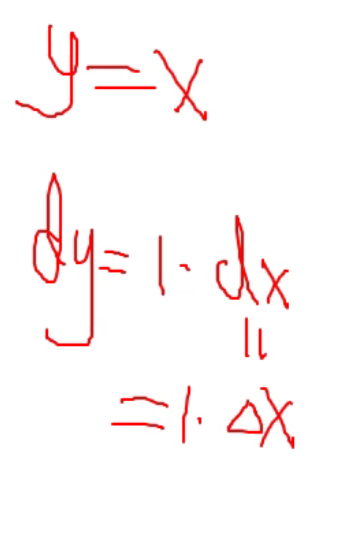 y=x
dy=1·dx
||
=1·Δx